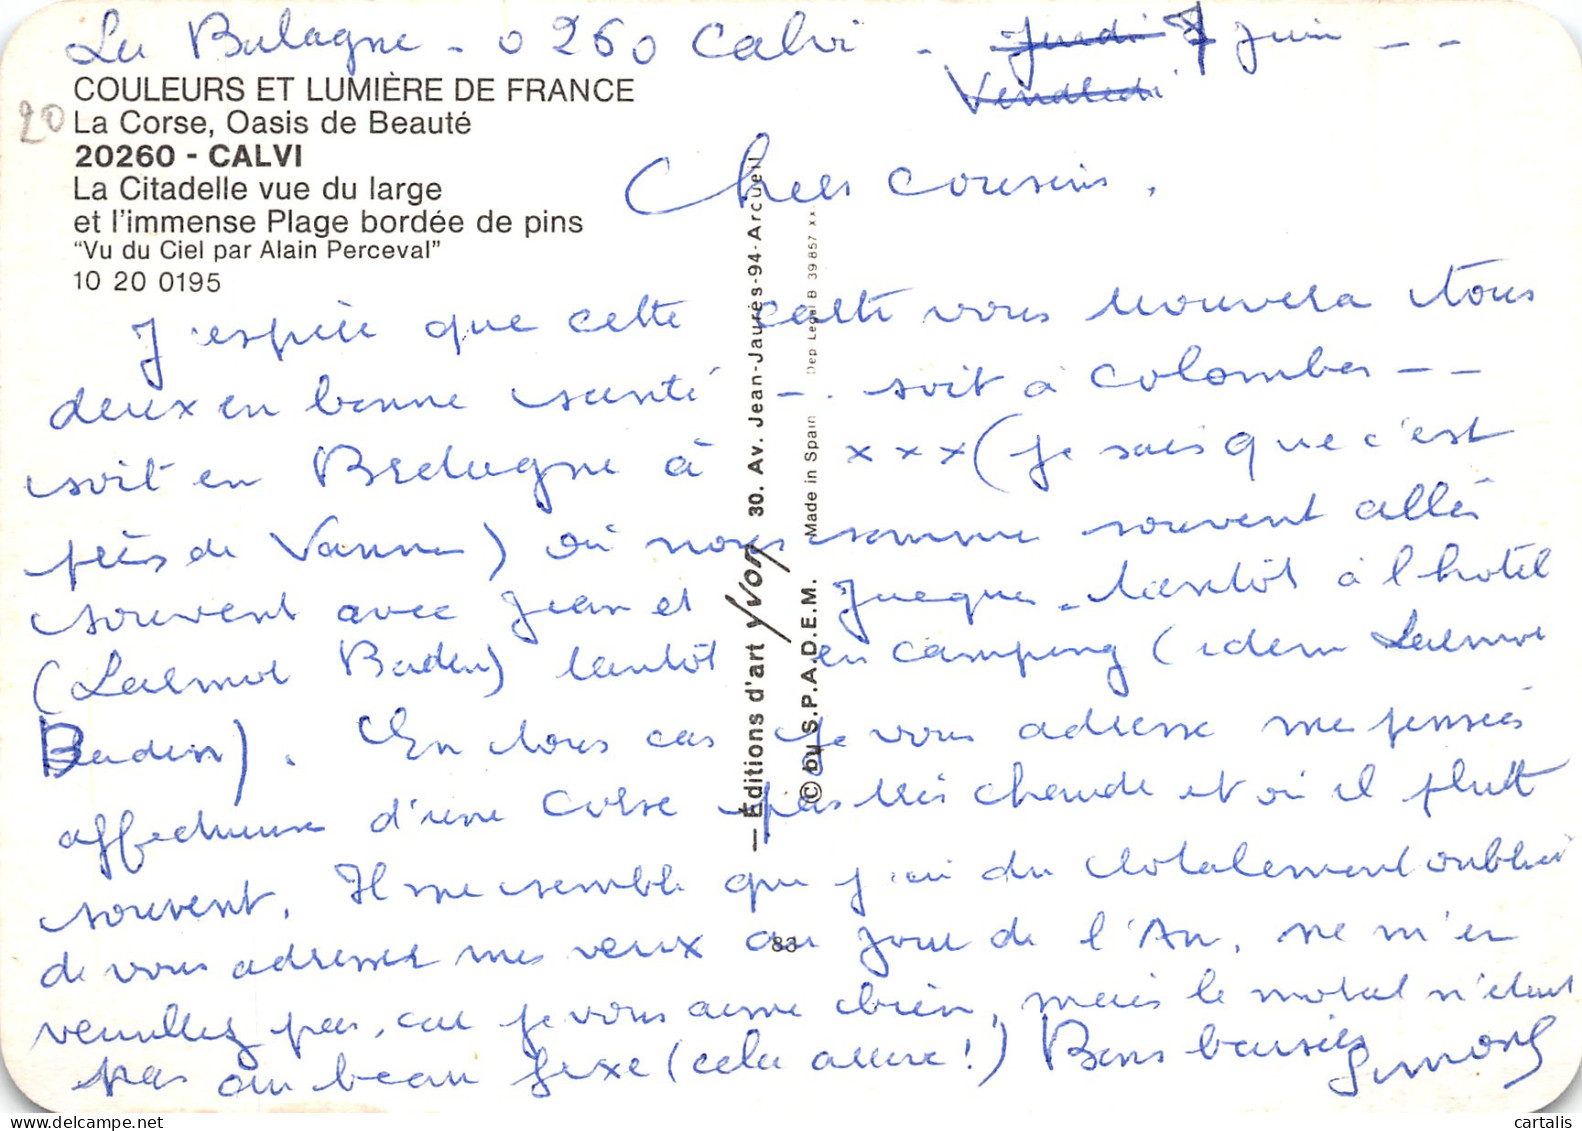 La Balagne - 0260 Calvi - Jeudi 7 Juin - -
Vendredi
COULEURS ET LUMIÈRE DE FRANCE
20 La Corse, Oasis de Beauté
20260 - CALVI
La Citadelle vue du large
et l'immense Plage bordée de pins
"Vu du Ciel par Alain Perceval"
10 20 0195
Chers cousins,
J'espère que cette carte vous trouvera tous
deux en bonne santé - . soit à Colombes - -
soit en Bretagne à x x x (je sais que c'est
près de Vannes) où nous sommes souvent allés
souvent avec Jean et Jacques - tantôt à l'hotel
(Larmor Baden) tantôt en camping (idem Larmor
Baden). En tous cas je vous adresse mes pensées
affectueuses d'une Corse pas très chaude et où il pleut
souvent. Il me semble que j'ai du totalement oublier
de vous adresser mes veux au jour de l'An, ne m'en
veuillez pas, car je vous aime bien, mais le moral n'étant
pas au beau fixe (cela arrive!) Bons baisers
Simone
— Éditions d'art Yvon 30. Av. Jean-Jaurès-94-Arcueil
© by S.P.A.D.E.M. Made in Spain Dep Legal B 39857 xx
83
cartalis